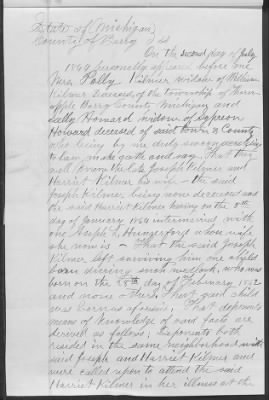 State of (Michigan)
County of Barry } ss
On the second day of July
1864 personally appeared before me
Mrs Polly Kilmer widow of William
Kilmer deceased, of the township of Thorn-
apple Barry County, Michigan and
Sally Howard widow of
Howard deceased of said town & County
who being by me duly sworn according
to law, make oath and say, That they
well know the late Joseph Kilmer and
Harriet Kilmer his wife - the said
Joseph Kilmer being now deceased and
the said Harriet Kilmer having on the 8th
day of January 1864 intermarried with
one Joseph L. Hungerford whose wife
she now is - That the said Joseph
Kilmer left surviving him one child
born during such wedlock, who was
born on the 28th day of February 1862
and none other, that said child
was born as aforesaid, That deponents
means of knowledge of said facts are
derived as follows, Deponents both
resided in the same neighborhood with
said Joseph and Harriet Kilmer and
were called upon to attend the said
Harriet Kilmer in her illness at the